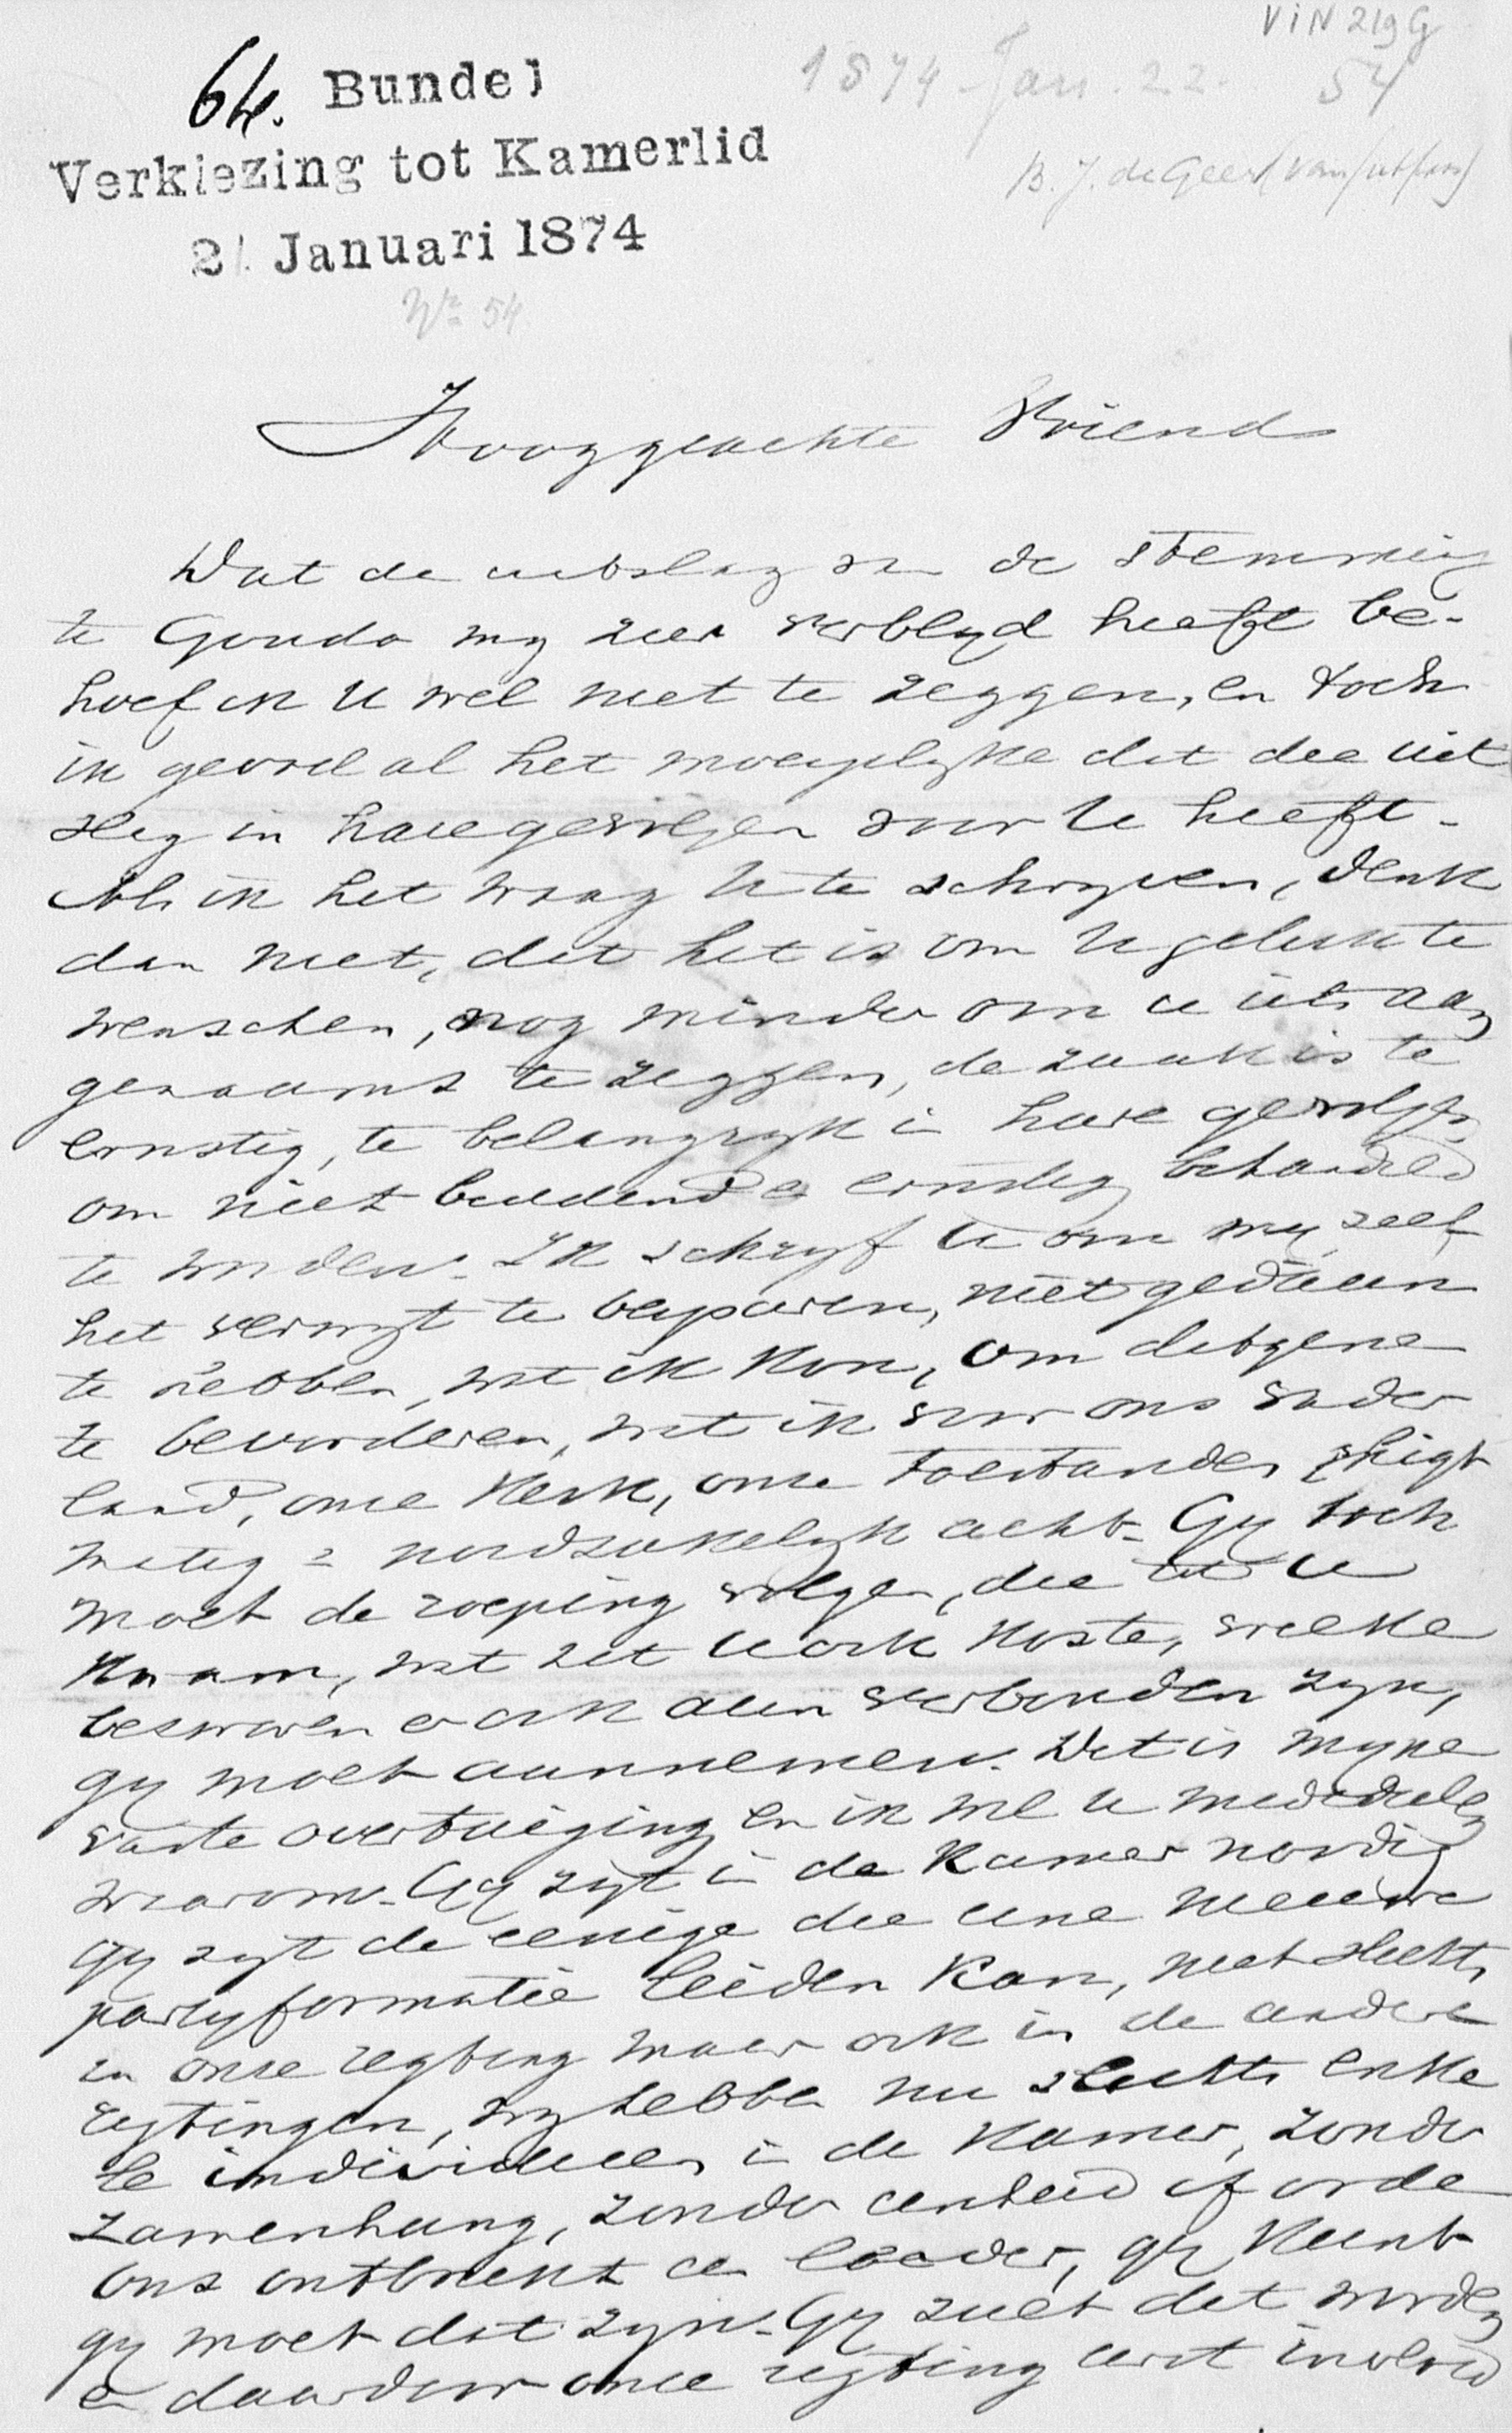 VIN 219 G
64. Bundel
1874 Jan. 22.
54
Verkiezing tot Kamerlid
B. J. de Geer (van Jutfaas)
21 Januari 1874
No 54
Hooggeachte Vriend
Dat de uitslag van de stemming
te Gouda my zeer verblyd heeft be-
hoef ik U wel niet te zeggen, en toch
ik gevoel al het moeyelyke dat die uit
slag in hare gevolgen voor U heeft.
Als ik het waag U te schryven, denk
dan niet, dat het is om U geluk te
wenschen, nog minder om u iets aan
genaams te zeggen, de zaak is te
ernstig, te belangryk in hare gevolgen
om niet biddend en ernstig behandeld
te worden. Ik schryf U om my zelf
het verwyt te besparen, niet gedaan
te hebben, wat ik kon, om datgene
te bevorderen, wat ik voor ons vader
land, onze Kerk, onze toestanden
noodzakelyk acht. Gy toch
moet de roeping volgen, die tot U
kwam, wat het U ook koste, welke
bezwaren er ook aan verbonden zyn,
gy moet aannemen. Dat is myne
vaste overtuiging en ik wil u mededeelen
waarom. Gy zyt in de Kamer noodig
gy zyt de eenige die eene nieuwe
partyformatie leiden kan, niet slechts
in onze regting maar ook in de andere
regtingen, wy hebben nu slechts enke
le individuen in de Kamer, zonder
zamenhang, zonder eenheid of orde
ons ontbreekt een leader, gy kunt
gy moet dat zyn. Gy zult dat worden
en daardoor onze regting eerst invloed